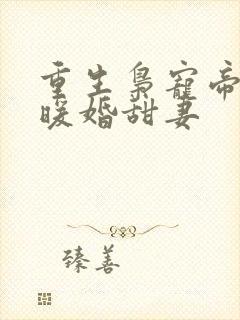 重生枭宠帝
暖婚甜妻
臻善